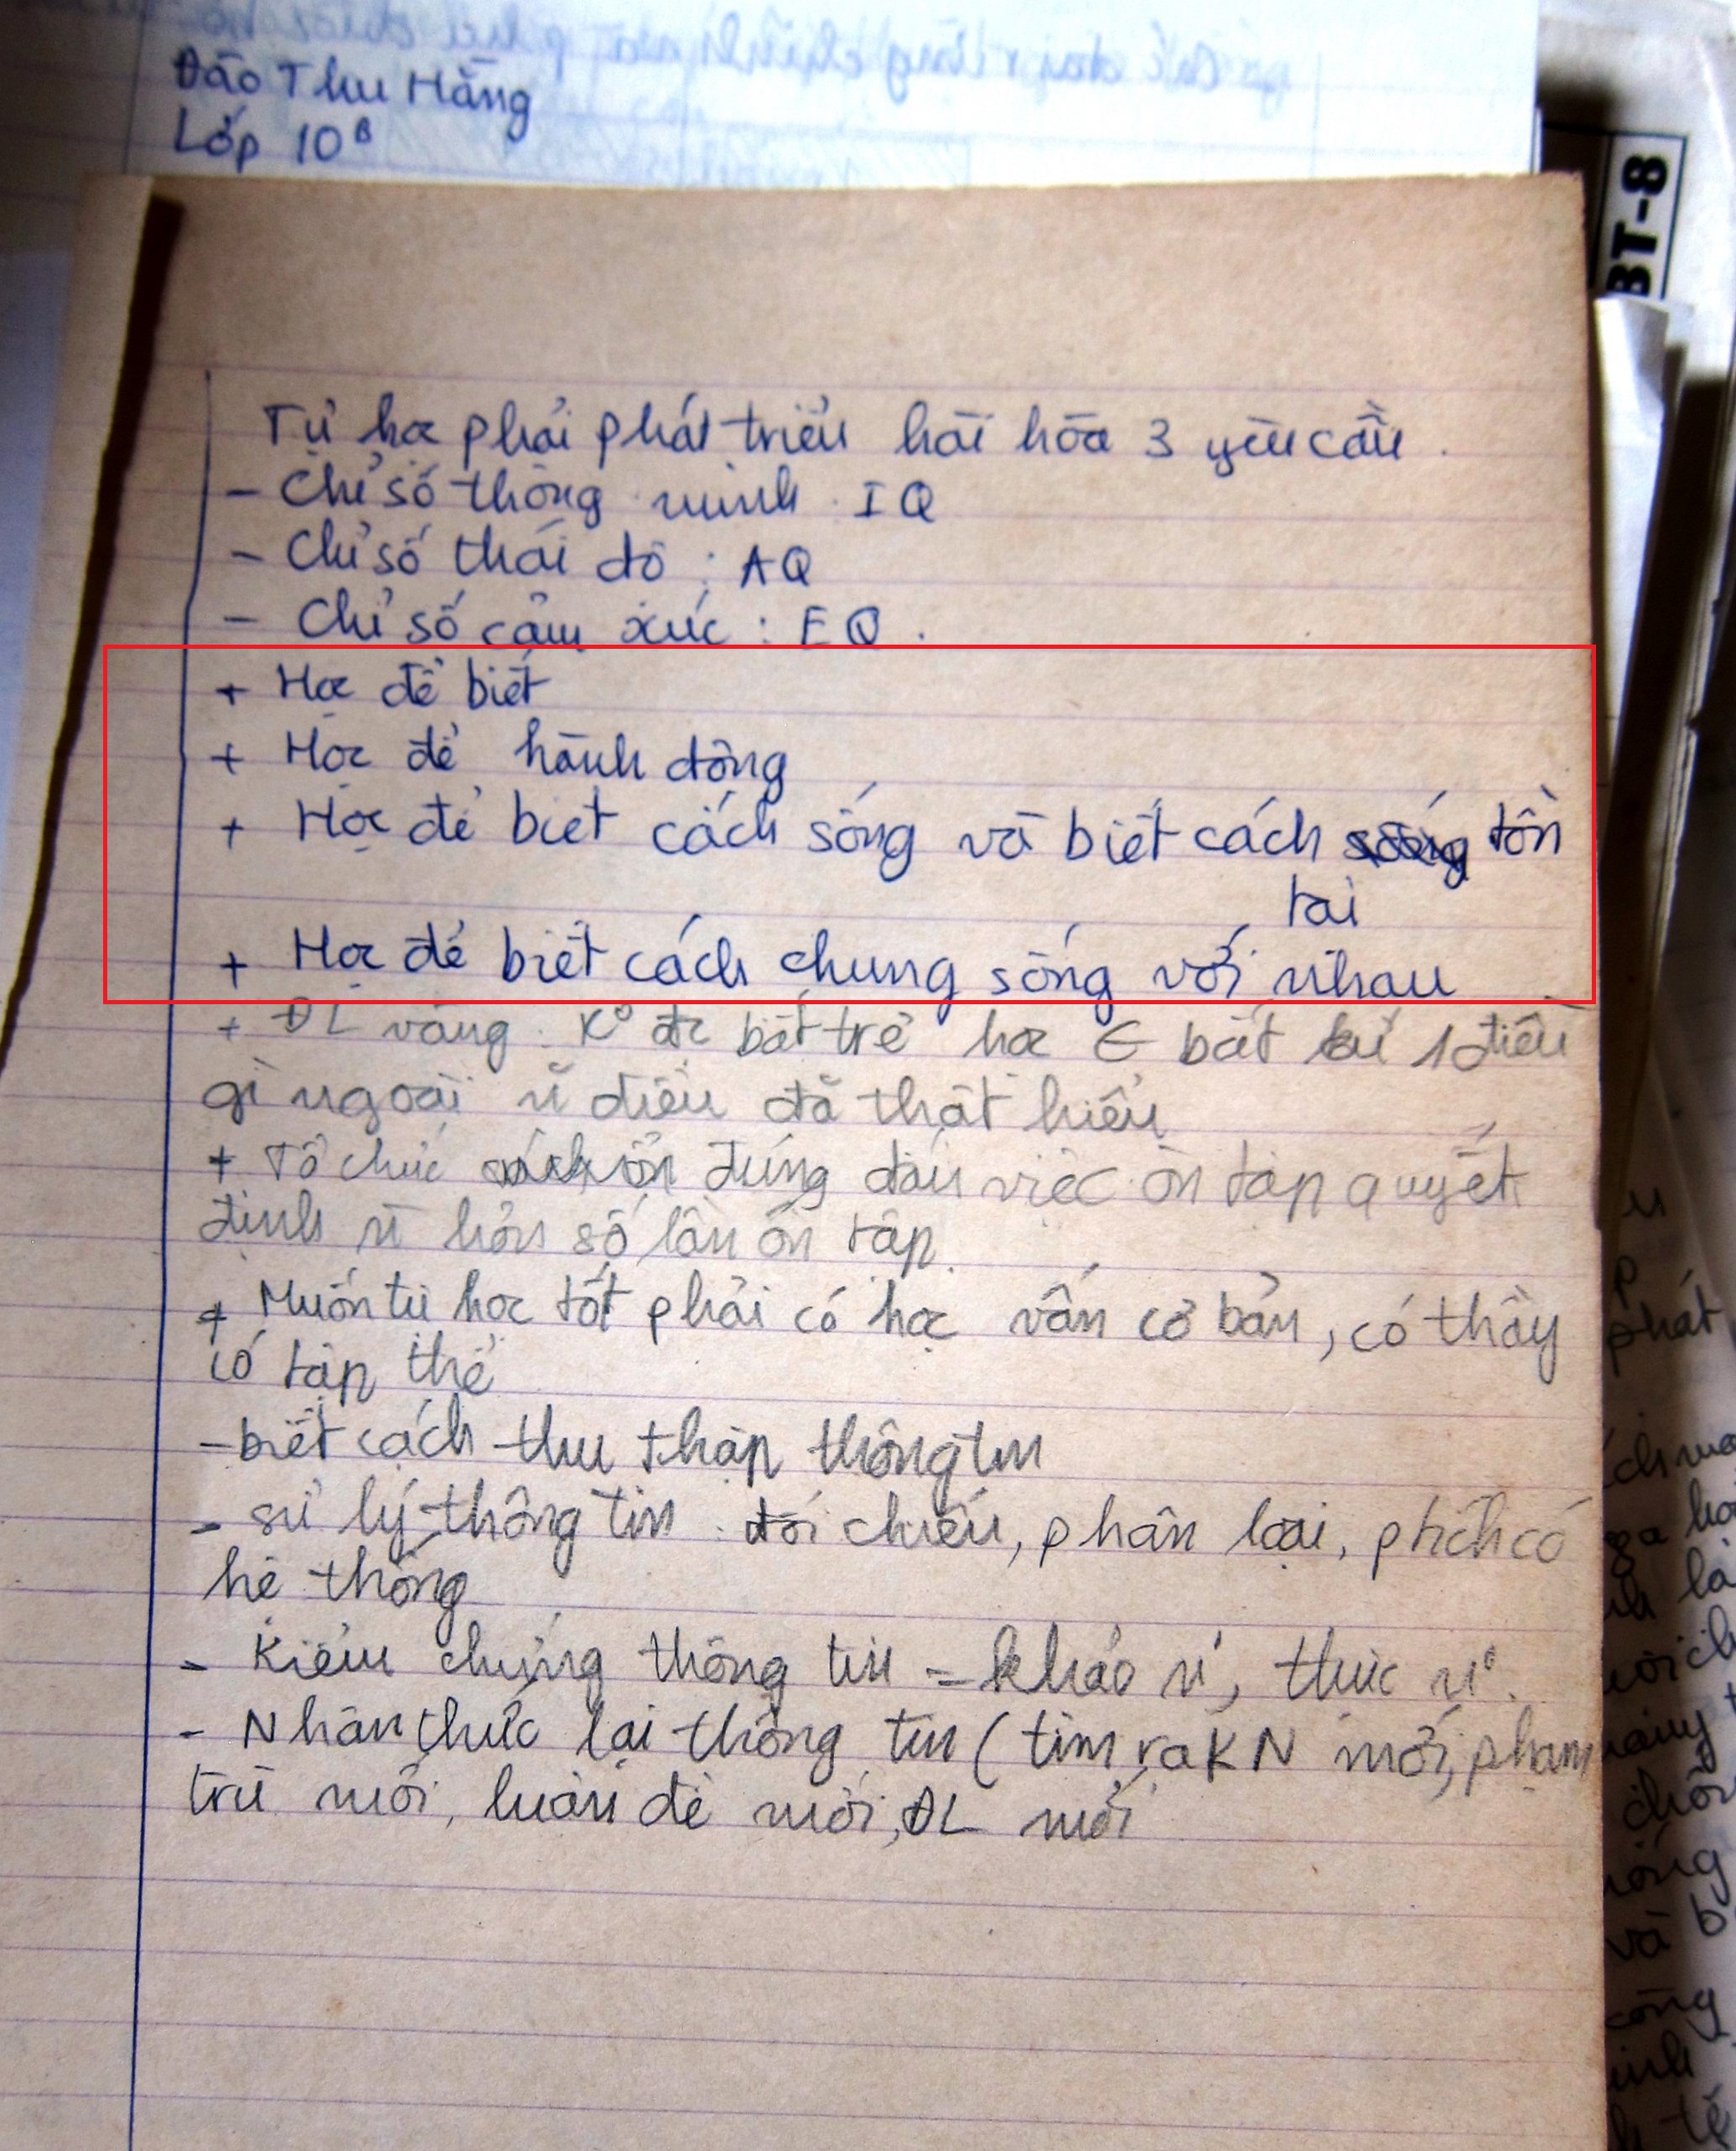 Đào Thu Hằng
Lớp 10B
BT-8
Tự học phải phát triển hài hòa 3 yêu cầu.
- Chỉ số thông minh IQ
- Chỉ số thái độ : AQ
- Chỉ số cảm xúc : EQ.
+ Học để biết
+ Học để hành động
+ Học để biết cách sống và biết cách sống tồn
tại
+ Học để biết cách chung sống với nhau
+ ĐL vàng : K° đc bắt trẻ học bất kì 1 điều
gì ngoài điều đã thật hiểu
+ Tổ chức đúng đắn việc ôn tập quyết
định hơn số lần ôn tập.
+ Muốn tự học tốt phải có học vấn cơ bản, có thầy
có tập thể
- biết cách thu thập thông tin
- sử lý thông tin : đối chiếu, phân loại, ptích có
hệ thống
- Kiểm chứng thông tin = khảo n', thực n°.
- Nhận thức lại thông tin (tìm ra KN mới, phạm
trù mới, luận đề mới, ĐL mới
phát
và b